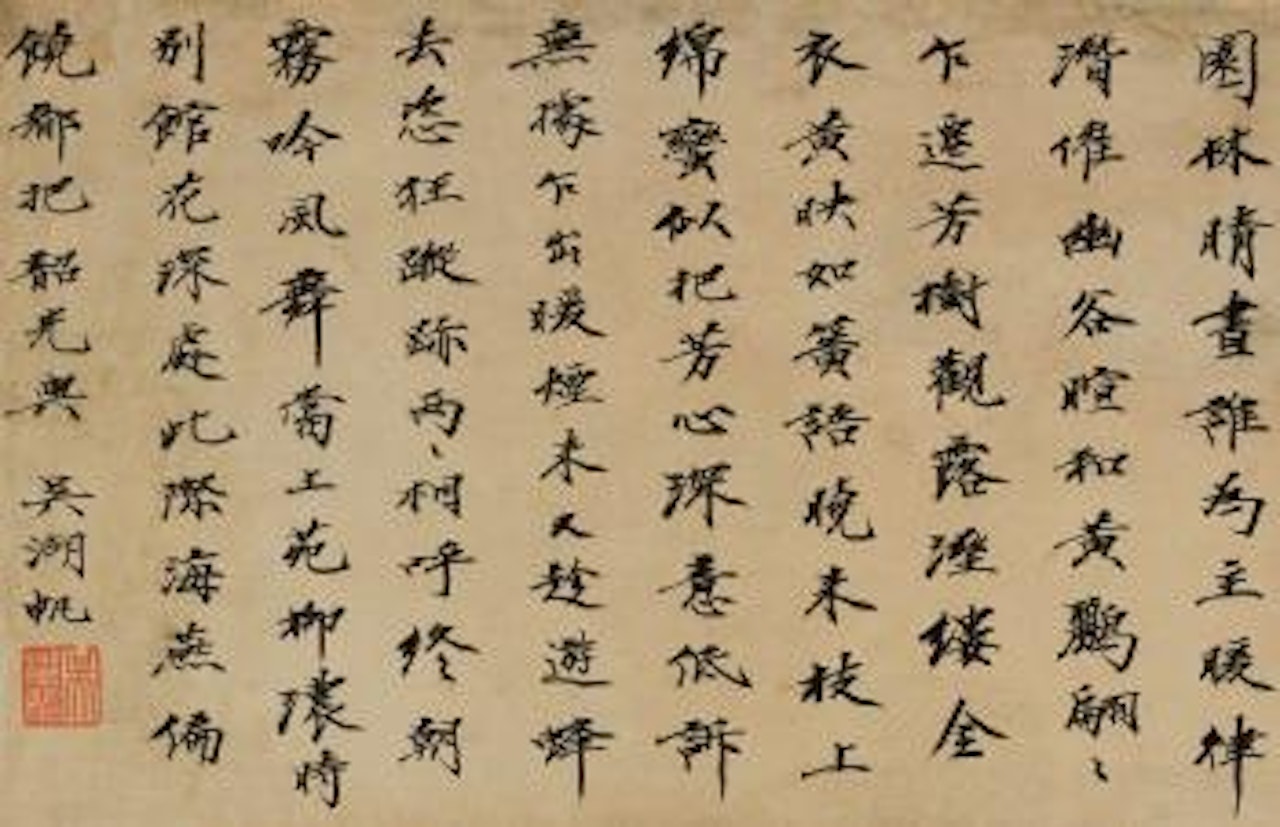 園林晴晝誰為主暖律
潛催幽谷暄和黄鸝翩〻
乍遷芳樹觀露溼縷金
衣黄映如簧語曉来枝上
綿蠻似把芳心深意低訴
無據乍乍出暖煙来又趁遊蜂
去恣狂蹤跡兩〻相呼終朝
霧吟風舞當上苑柳穠時
別館花深處此際海燕偏
饒都把韶光與 吳湖帆